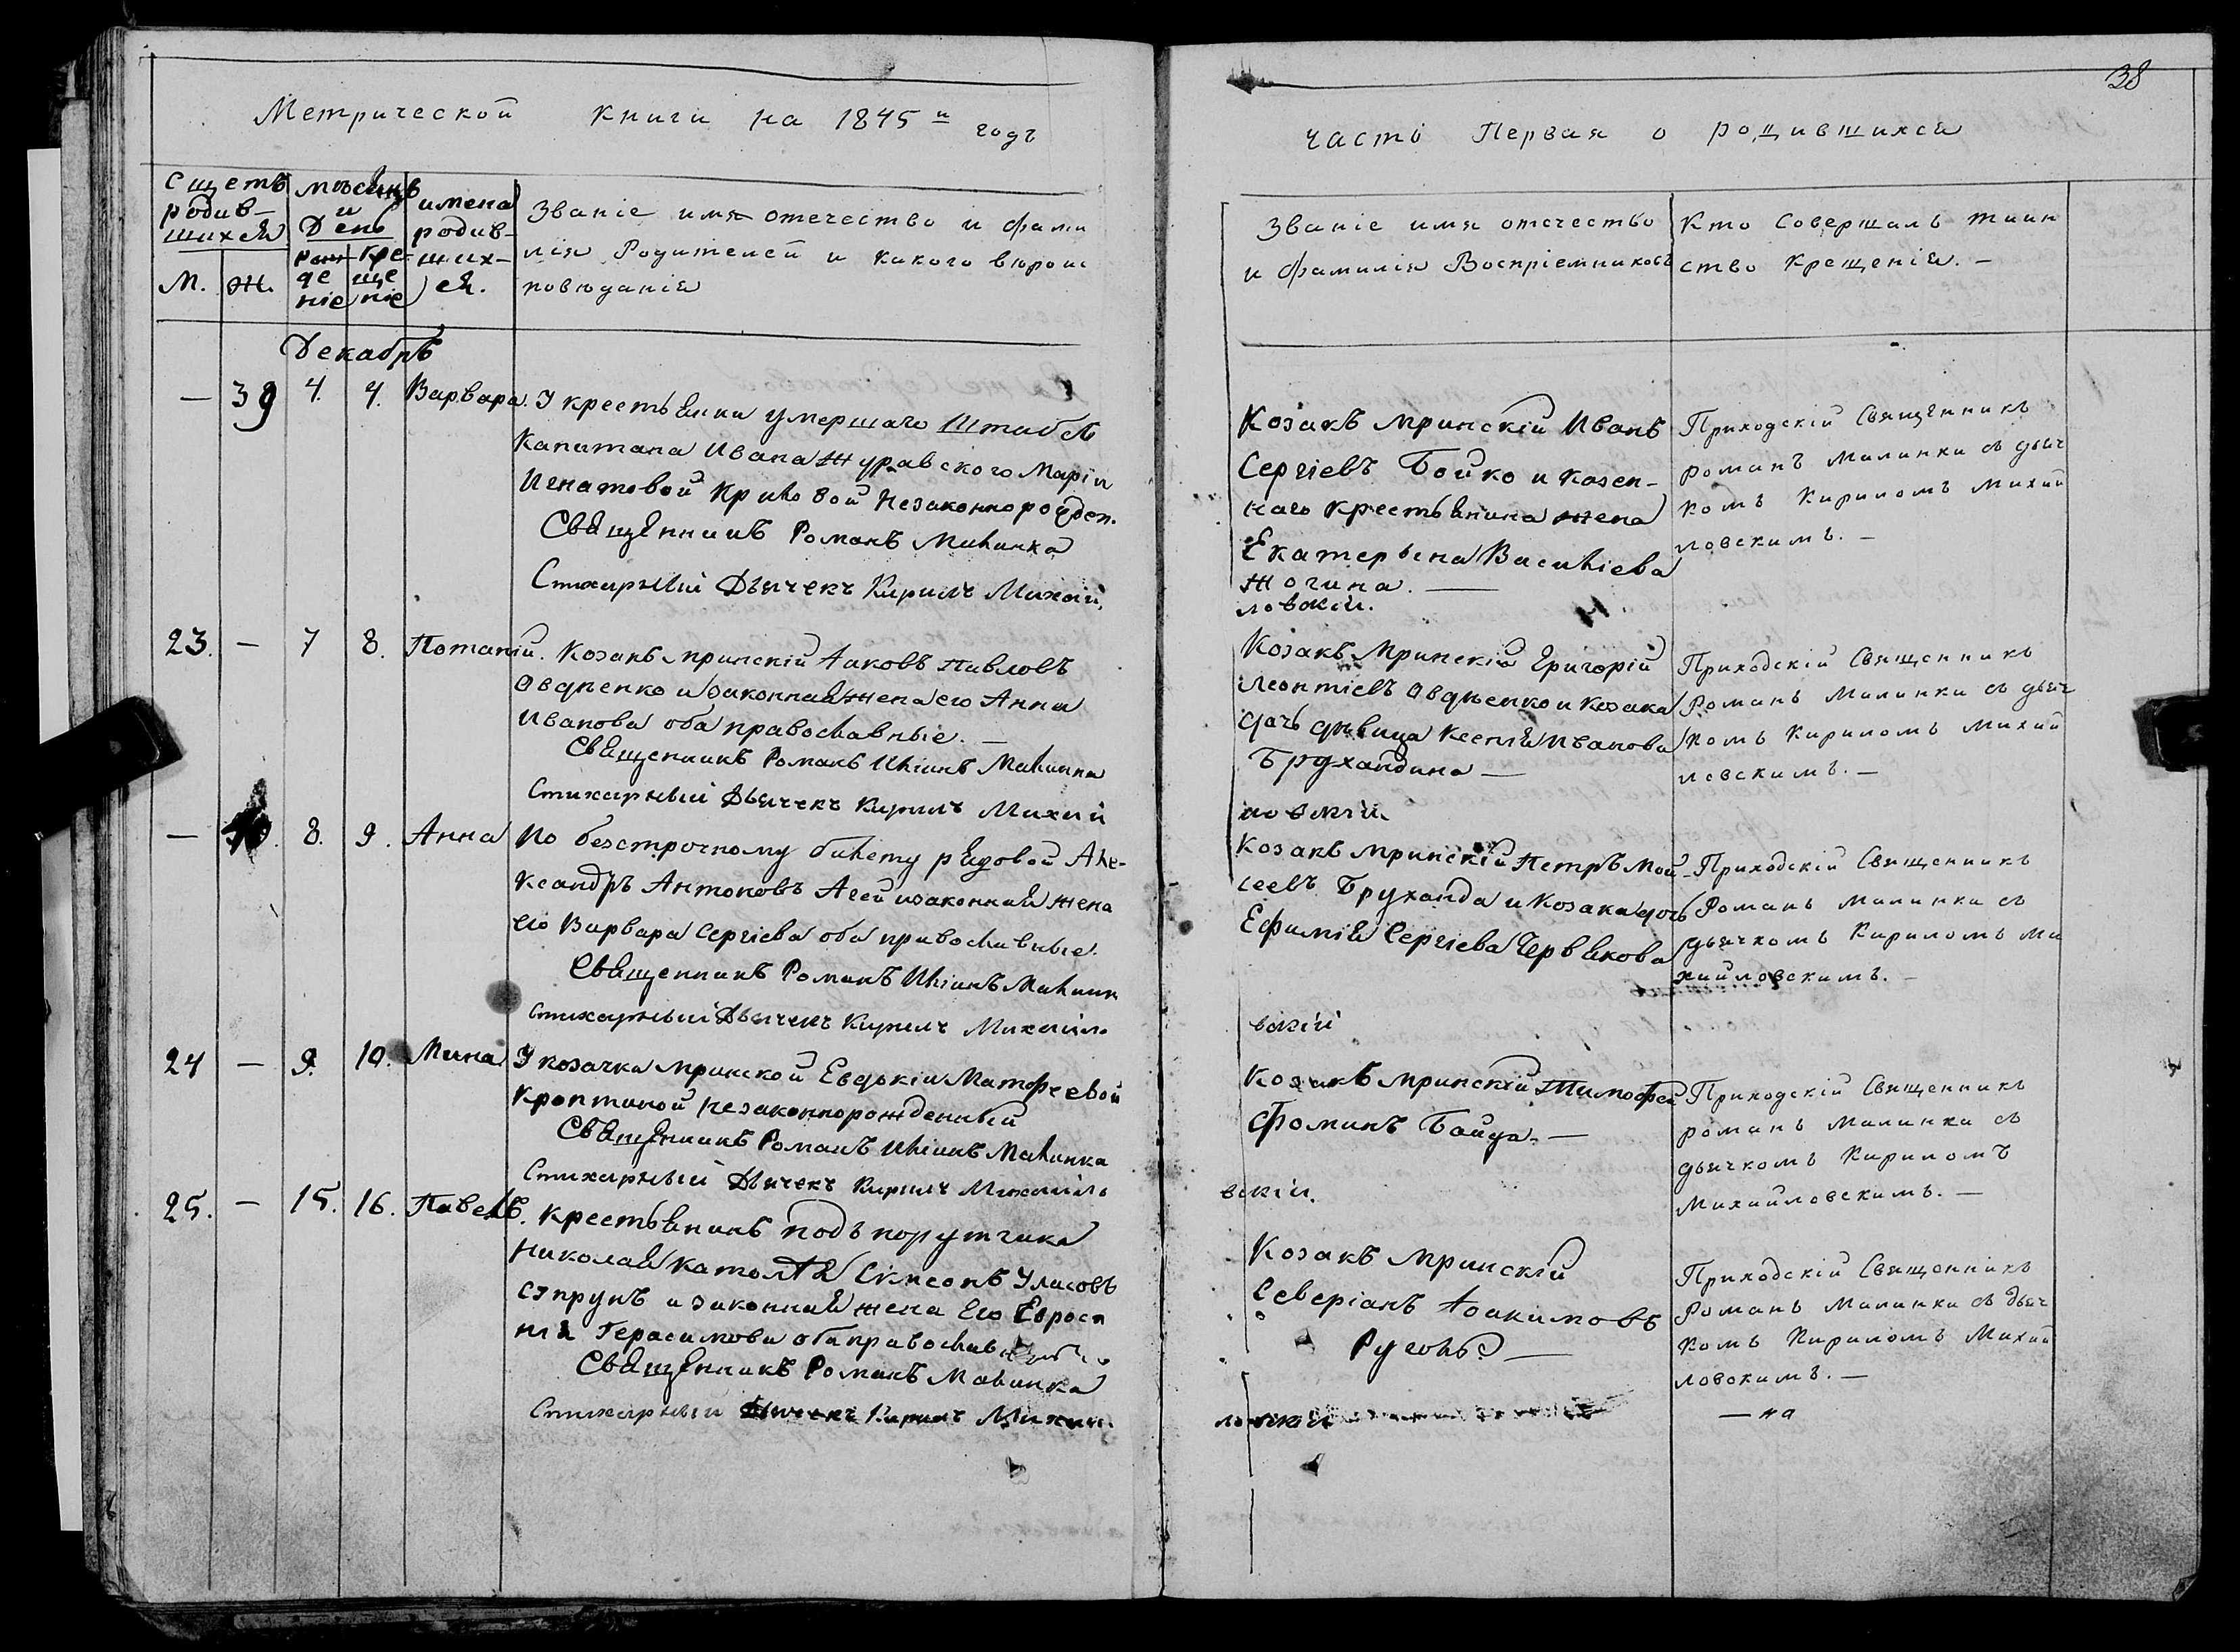 38
Метрической книги на 1845 й годъ
часть Первая о родившихся
Сщетъ
родив-
шихся
М. Ж.
мѣсяцъ
и
День
рож
де
ніе
кре-
ще
ніе
имена
родив-
ших-
ся.
Званіе имя отечество и фами
лія Родителей и какого вѣрои
повѣданія
Званіе имя отечество
и Фамилія Воспріемниковъ
Кто Совершалъ таин
ство Крещенія. -
Декабрь
— 39 4. 4. Варвара. У крестьянки умершаго Штабсъ
Капитана Ивана Журавского Маріи
Игнатовой Криковой Незаконнорожден.
Священникъ Романъ Малинка
Стихарный Дьячекъ Кирилъ Михай
Козакъ мринскій Иванъ
Сергіевъ Бойко и казен-
наго крестьянина жена
Екатерына Василіева
Жогина. —
ловскій.
Приходскій Священникъ
романъ Малинка съ дьяч
комъ Кириломъ Михай
ловскимъ. -
23. — 7 8. Потапій. Козакъ мринскій Іаковъ Павловъ
Овдіенко и законная жена его Анна
Иванова оба православные. —
Священникъ Романъ Иліинъ Малинка
Стихарный Дьячекъ Кирилъ Михай
Козакъ Мринскій Григорій
Леонтіевъ Овдіенко и козака
дочь дѣвица Ксенія Иванова
Брухандина —
ловскій.
Приходскій Священникъ
Романъ Малинка съ дьяч
комъ Кириломъ Михай
ловскимъ. -
— 40. 8. 9. Анна По безсрочному билету рядовой Але-
ксандръ Антоновъ Агей и законная жена
его Варвара Сергіева оба православные.
Священникъ Романъ Иліинъ Малинк
Стихарный Дьячекъ Кирилъ Михайло
Козакъ мринскій Петръ Мой-
сеевъ Бруханда и Козака дочь
Ефимія Сергіева Червякова
вскій
Приходскій Священникъ
Романъ Малинка съ
дьячкомъ Кириломъ Ми
хайловскимъ. -
24 — 9. 10. Мина У козачки мринской Евдокіи Матфеевой
Кроптиной незаконнорожденный
Священникъ Романъ Иліинъ Малинка
Стихарный Дьячекъ Кирилъ Михайло
Козакъ мринскій Тимофей
Фоминъ Байда. —
вскій.
Приходскій Священникъ
романъ Малинка съ
дьячкомъ Кириломъ
Михайловскимъ. —
25. — 15. 16. Павелъ. Крестьянинъ подъпорутчика
Николая Ксисонъ Уласовъ
Супрунъ и законная жена Его Евроси
нія Герасимова оба православные
Священникъ Романъ Малинка
Стихарный Дьячекъ Кирилъ Михай
Козакъ мринскій
Северіанъ Іоакимовъ
Русолъ. —
ловскій
Приходскій Священникъ
Романъ Малинка съ дьяч
комъ Кириломъ Михай
ловскимъ. —
— на